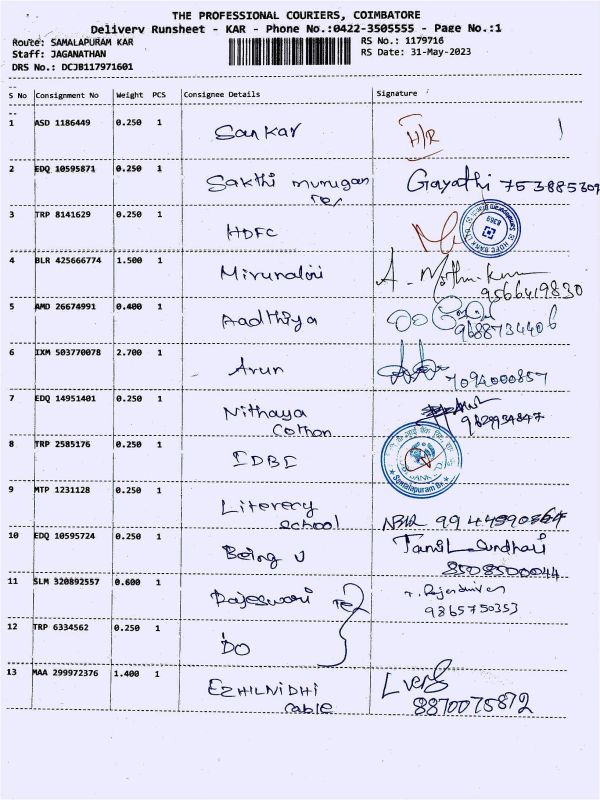 THE PROFESSIONAL COURIERS, COIMBATORE
Delivery Runsheet - KAR - Phone No.:0422-3505555 - Page No.:1
Route: SAMALAPURAM KAR RS No.: 1179716
Staff: JAGANATHAN RS Date: 31-May-2023
DRS No.: DCJB117971601
S No Consignment No Weight PCS Consignee Details Signature
1 ASD 1186449 0.250 1 Sankar H/R
2 EDQ 10595871 0.250 1 Sakthi murugan Gayathi 753885309
Tex
3 TRP 8141629 0.250 1 HDFC
4 BLR 425666774 1.500 1 Mirunalini
9566419830
5 AMD 26674991 0.400 1 Aadthiya
9688734406
6 IXM 503770078 2.700 1 Arun
7094000857
7 EDQ 14951401 0.250 1 Nithaya
Cotton
8 TRP 2585176 0.250 1 IDBI
Samalapuram Br
9 MTP 1231128 0.250 1 Literecy
School
10 EDQ 10595724 0.250 1 Being U
8508500044
11 SLM 320892557 0.600 1 Rajeswari Tex
9865750353
12 TRP 6334562 0.250 1 DO
13 MAA 299972376 1.400 1 EZHILNIDHI
cable 8870075872